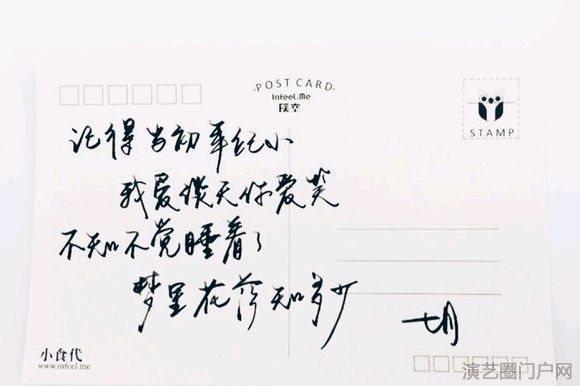 POST CARD
Infeel.Me
STAMP
记得当初年纪小
我爱谈天你爱笑
不知不觉睡着了
梦里花落知多少
七月
小食代
www.infeel.me
演艺圈门户网